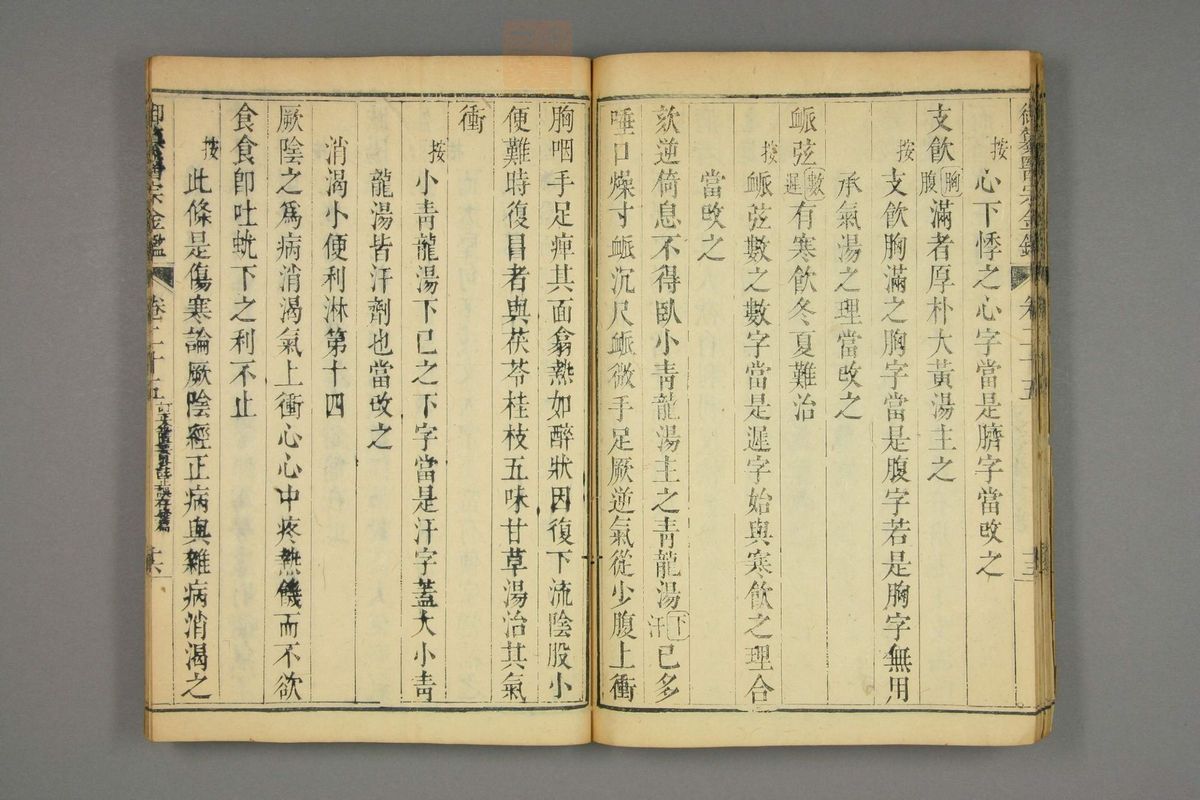 御纂醫宗金鑑 卷二十五
按心下悸之心字當是臍字當攺之
支飲胸腹滿者厚朴大黃湯主之
按支飲胸滿之胸字當是腹字若是胸字無用
承氣湯之理當攺之
衇弦數遲有寒飲冬夏難治
按衇弦數之數字當是遲字始與寒飲之理合
當攺之
欬逆倚息不得臥小青龍湯主之青龍湯下汗已多
唾口燥寸衇沉尺衇微手足厥逆氣從少腹上衝
胸咽手足痺其面翕熱如醉狀因復下流陰股小
便難時復冒者與茯苓桂枝五味甘草湯治其氣
衝
按小青龍湯下已之下字當是汗字蓋大小青
龍湯皆汗劑也當攺之
消渴小便利淋第十四
厥陰之為病消渴氣上衝心心中疼熱饑而不欲
食食卽吐蚘下之利不止
按此條是傷寒論厥陰經正病與雜病消渴之
御纂醫宗金鑑 卷二十五 十六